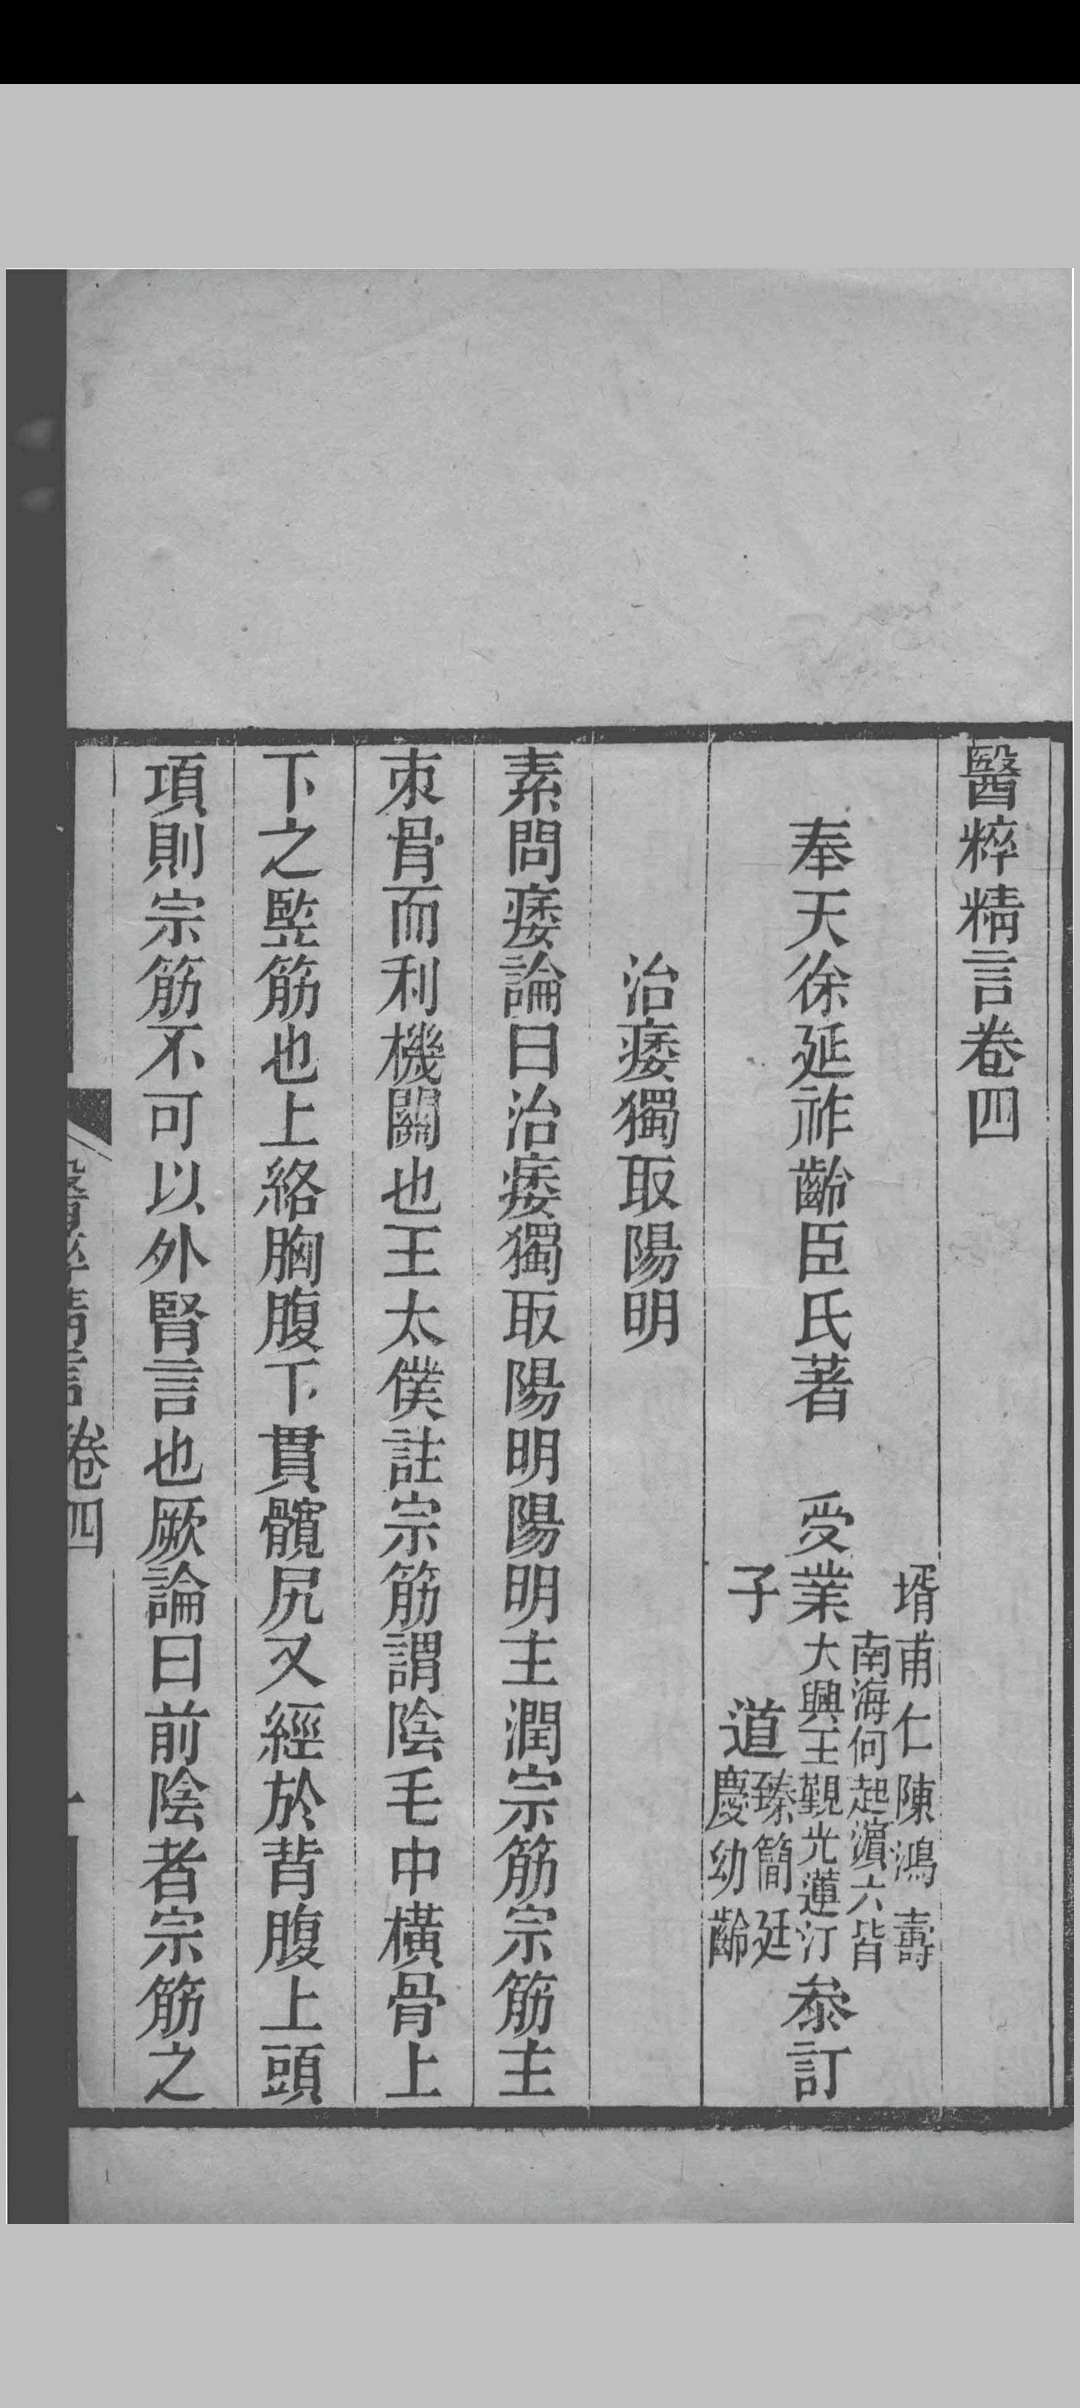 醫粹精言卷四
奉天徐延祚齡臣氏著
壻甫仁陳鴻壽
受業
南海何起濵六皆
大興王覲光蓮汀
子
道
臻簡廷
慶幼齡
叅訂
治痿獨取陽明
素問痿論曰治痿獨取陽明陽明主潤宗筋宗筋主
朿骨而利機關也王太僕註宗筋謂陰毛中橫骨上
下之竪筋也上絡胸腹下貫髖尻又經於背腹上頭
項則宗筋不可以外腎言也厥論曰前陰者宗筋之
醫粹精言卷四
一